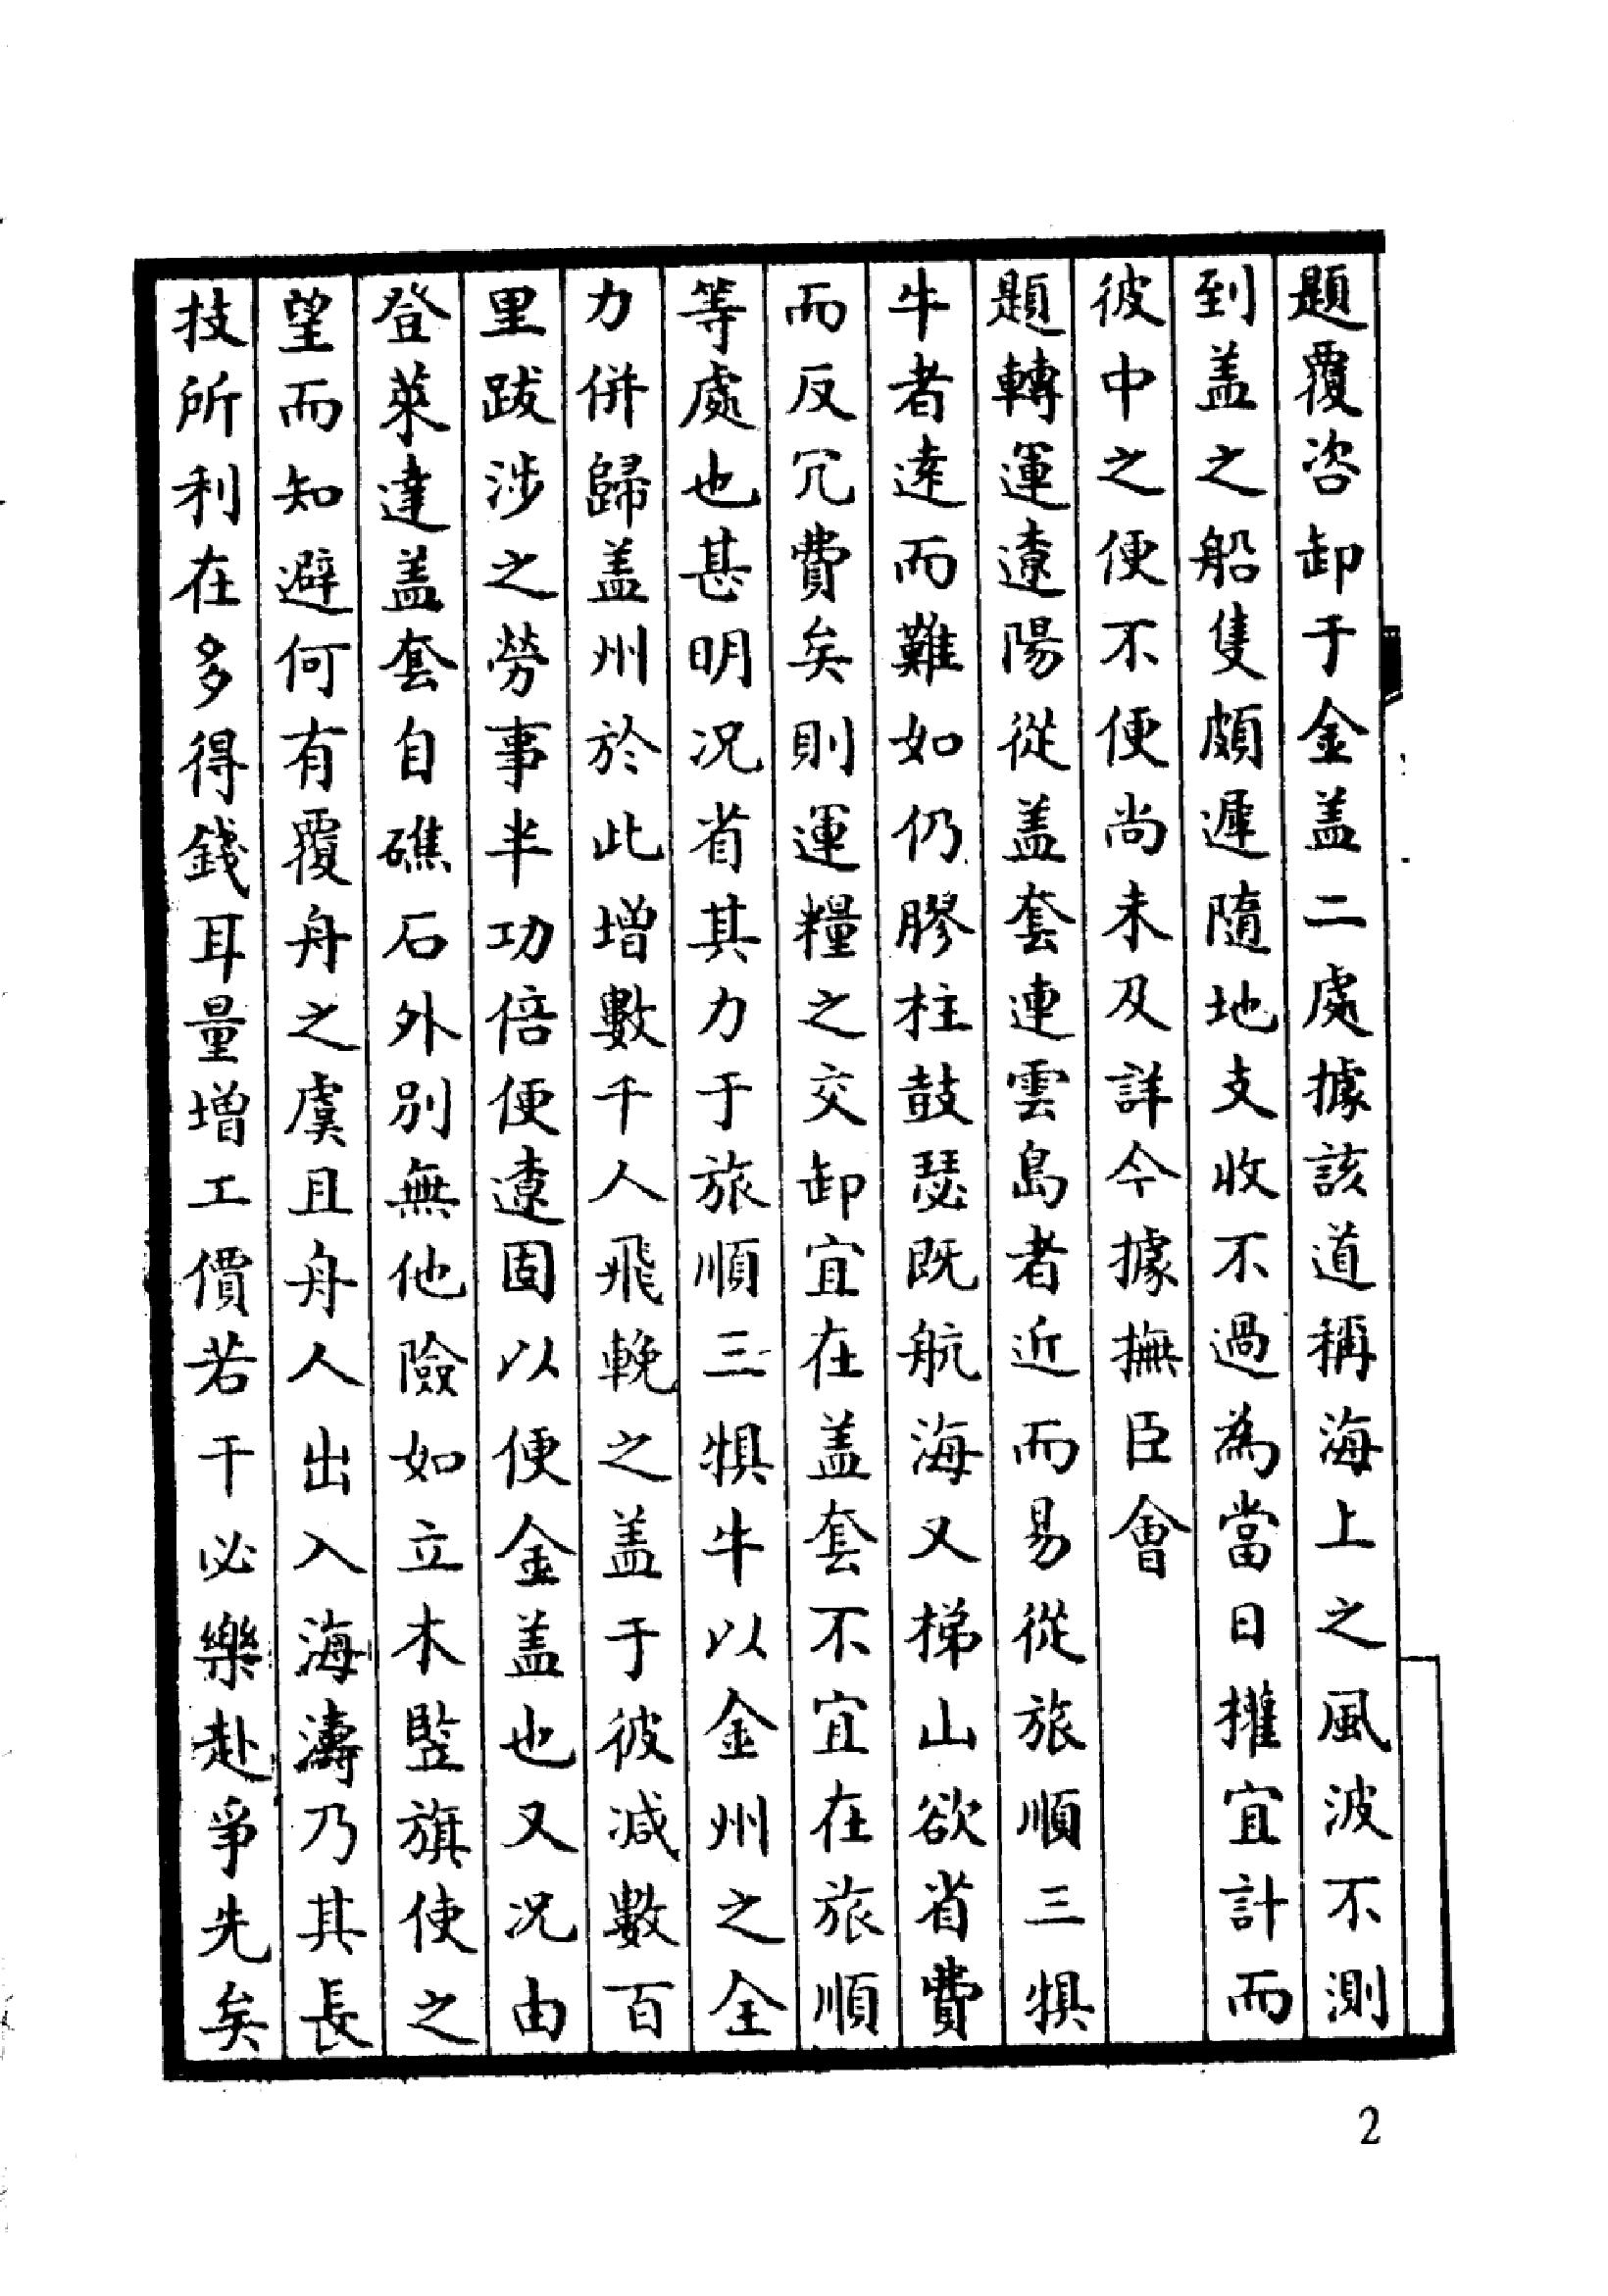 題覆咨卸于金盖二處據該道稱海上之風波不測
到盖之船隻頗遲隨地支收不過為當日權宜計而
彼中之便不便尚未及詳今據撫臣會
題轉運遼陽從盖套連雲島者近而易從旅順三犋
牛者遠而難如仍膠柱鼓瑟既航海又梯山欲省費
而反冗費矣則運糧之交卸宜在盖套不宜在旅順
等處也甚明况省其力于旅順三犋牛以金州之全
力併歸盖州於此增數千人飛輓之盖于彼减數百
里跋涉之勞事半功倍便遼固以便金盖也又况由
登萊達盖套自礁石外別無他險如立木竪旗使之
望而知避何有覆舟之虞且舟人出入海濤乃其長
技所利在多得錢耳量增工價若干必樂赴爭先矣
2